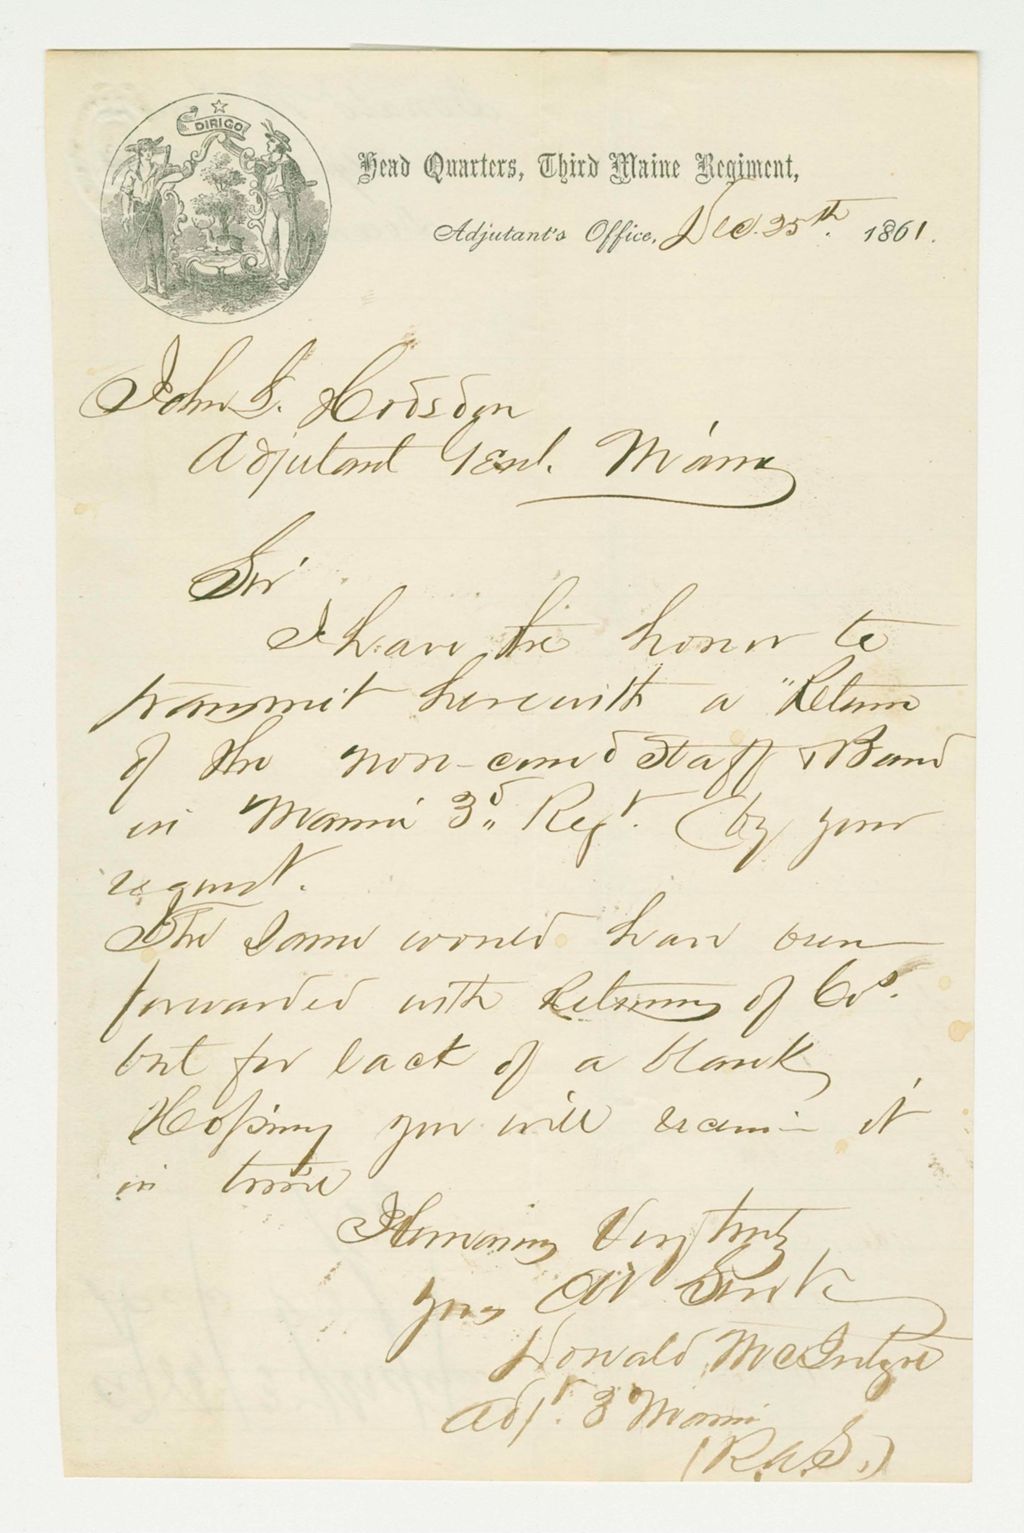 DIRIGO
Head Quarters, Third Maine Regiment,
Adjutant's Office, Dec. 25th. 1861.
John L. Hodsdon
Adjutant Genl. Maine
Sir
I have the honor to
transmit herewith a "Return
of the non-comd Staff & Band
in Maine 3d Regt. (by your
request.
The same would have been
forwarded with Returns of Cos.
but for lack of a blank
Hoping you will receive it
in time
I Remaining Very truly
your Obt Servt
Donald McIntyre
Adjt. 3 Maine
(R.A.S.)